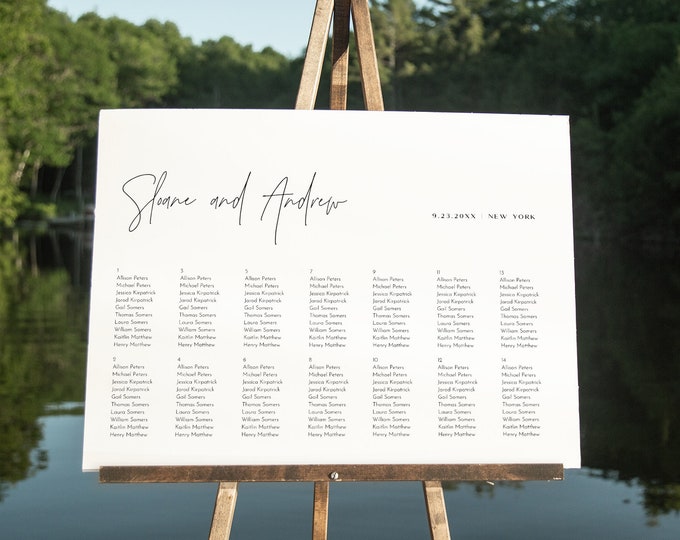 Sloane and Andrew
9.23.20XX | NEW YORK
1
Allison Peters
Michael Peters
Jessica Kirpatrick
Jarod Kirpatrick
Gail Somers
Thomas Somers
Laura Somers
William Somers
Kaitlin Matthew
Henry Matthew
3
Allison Peters
Michael Peters
Jessica Kirpatrick
Jarod Kirpatrick
Gail Somers
Thomas Somers
Laura Somers
William Somers
Kaitlin Matthew
Henry Matthew
5
Allison Peters
Michael Peters
Jessica Kirpatrick
Jarod Kirpatrick
Gail Somers
Thomas Somers
Laura Somers
William Somers
Kaitlin Matthew
Henry Matthew
7
Allison Peters
Michael Peters
Jessica Kirpatrick
Jarod Kirpatrick
Gail Somers
Thomas Somers
Laura Somers
William Somers
Kaitlin Matthew
Henry Matthew
9
Allison Peters
Michael Peters
Jessica Kirpatrick
Jarod Kirpatrick
Gail Somers
Thomas Somers
Laura Somers
William Somers
Kaitlin Matthew
Henry Matthew
11
Allison Peters
Michael Peters
Jessica Kirpatrick
Jarod Kirpatrick
Gail Somers
Thomas Somers
Laura Somers
William Somers
Kaitlin Matthew
Henry Matthew
13
Allison Peters
Michael Peters
Jessica Kirpatrick
Jarod Kirpatrick
Gail Somers
Thomas Somers
Laura Somers
William Somers
Kaitlin Matthew
Henry Matthew
2
Allison Peters
Michael Peters
Jessica Kirpatrick
Jarod Kirpatrick
Gail Somers
Thomas Somers
Laura Somers
William Somers
Kaitlin Matthew
Henry Matthew
4
Allison Peters
Michael Peters
Jessica Kirpatrick
Jarod Kirpatrick
Gail Somers
Thomas Somers
Laura Somers
William Somers
Kaitlin Matthew
Henry Matthew
6
Allison Peters
Michael Peters
Jessica Kirpatrick
Jarod Kirpatrick
Gail Somers
Thomas Somers
Laura Somers
William Somers
Kaitlin Matthew
Henry Matthew
8
Allison Peters
Michael Peters
Jessica Kirpatrick
Jarod Kirpatrick
Gail Somers
Thomas Somers
Laura Somers
William Somers
Kaitlin Matthew
Henry Matthew
10
Allison Peters
Michael Peters
Jessica Kirpatrick
Jarod Kirpatrick
Gail Somers
Thomas Somers
Laura Somers
William Somers
Kaitlin Matthew
Henry Matthew
12
Allison Peters
Michael Peters
Jessica Kirpatrick
Jarod Kirpatrick
Gail Somers
Thomas Somers
Laura Somers
William Somers
Kaitlin Matthew
Henry Matthew
14
Allison Peters
Michael Peters
Jessica Kirpatrick
Jarod Kirpatrick
Gail Somers
Thomas Somers
Laura Somers
William Somers
Kaitlin Matthew
Henry Matthew